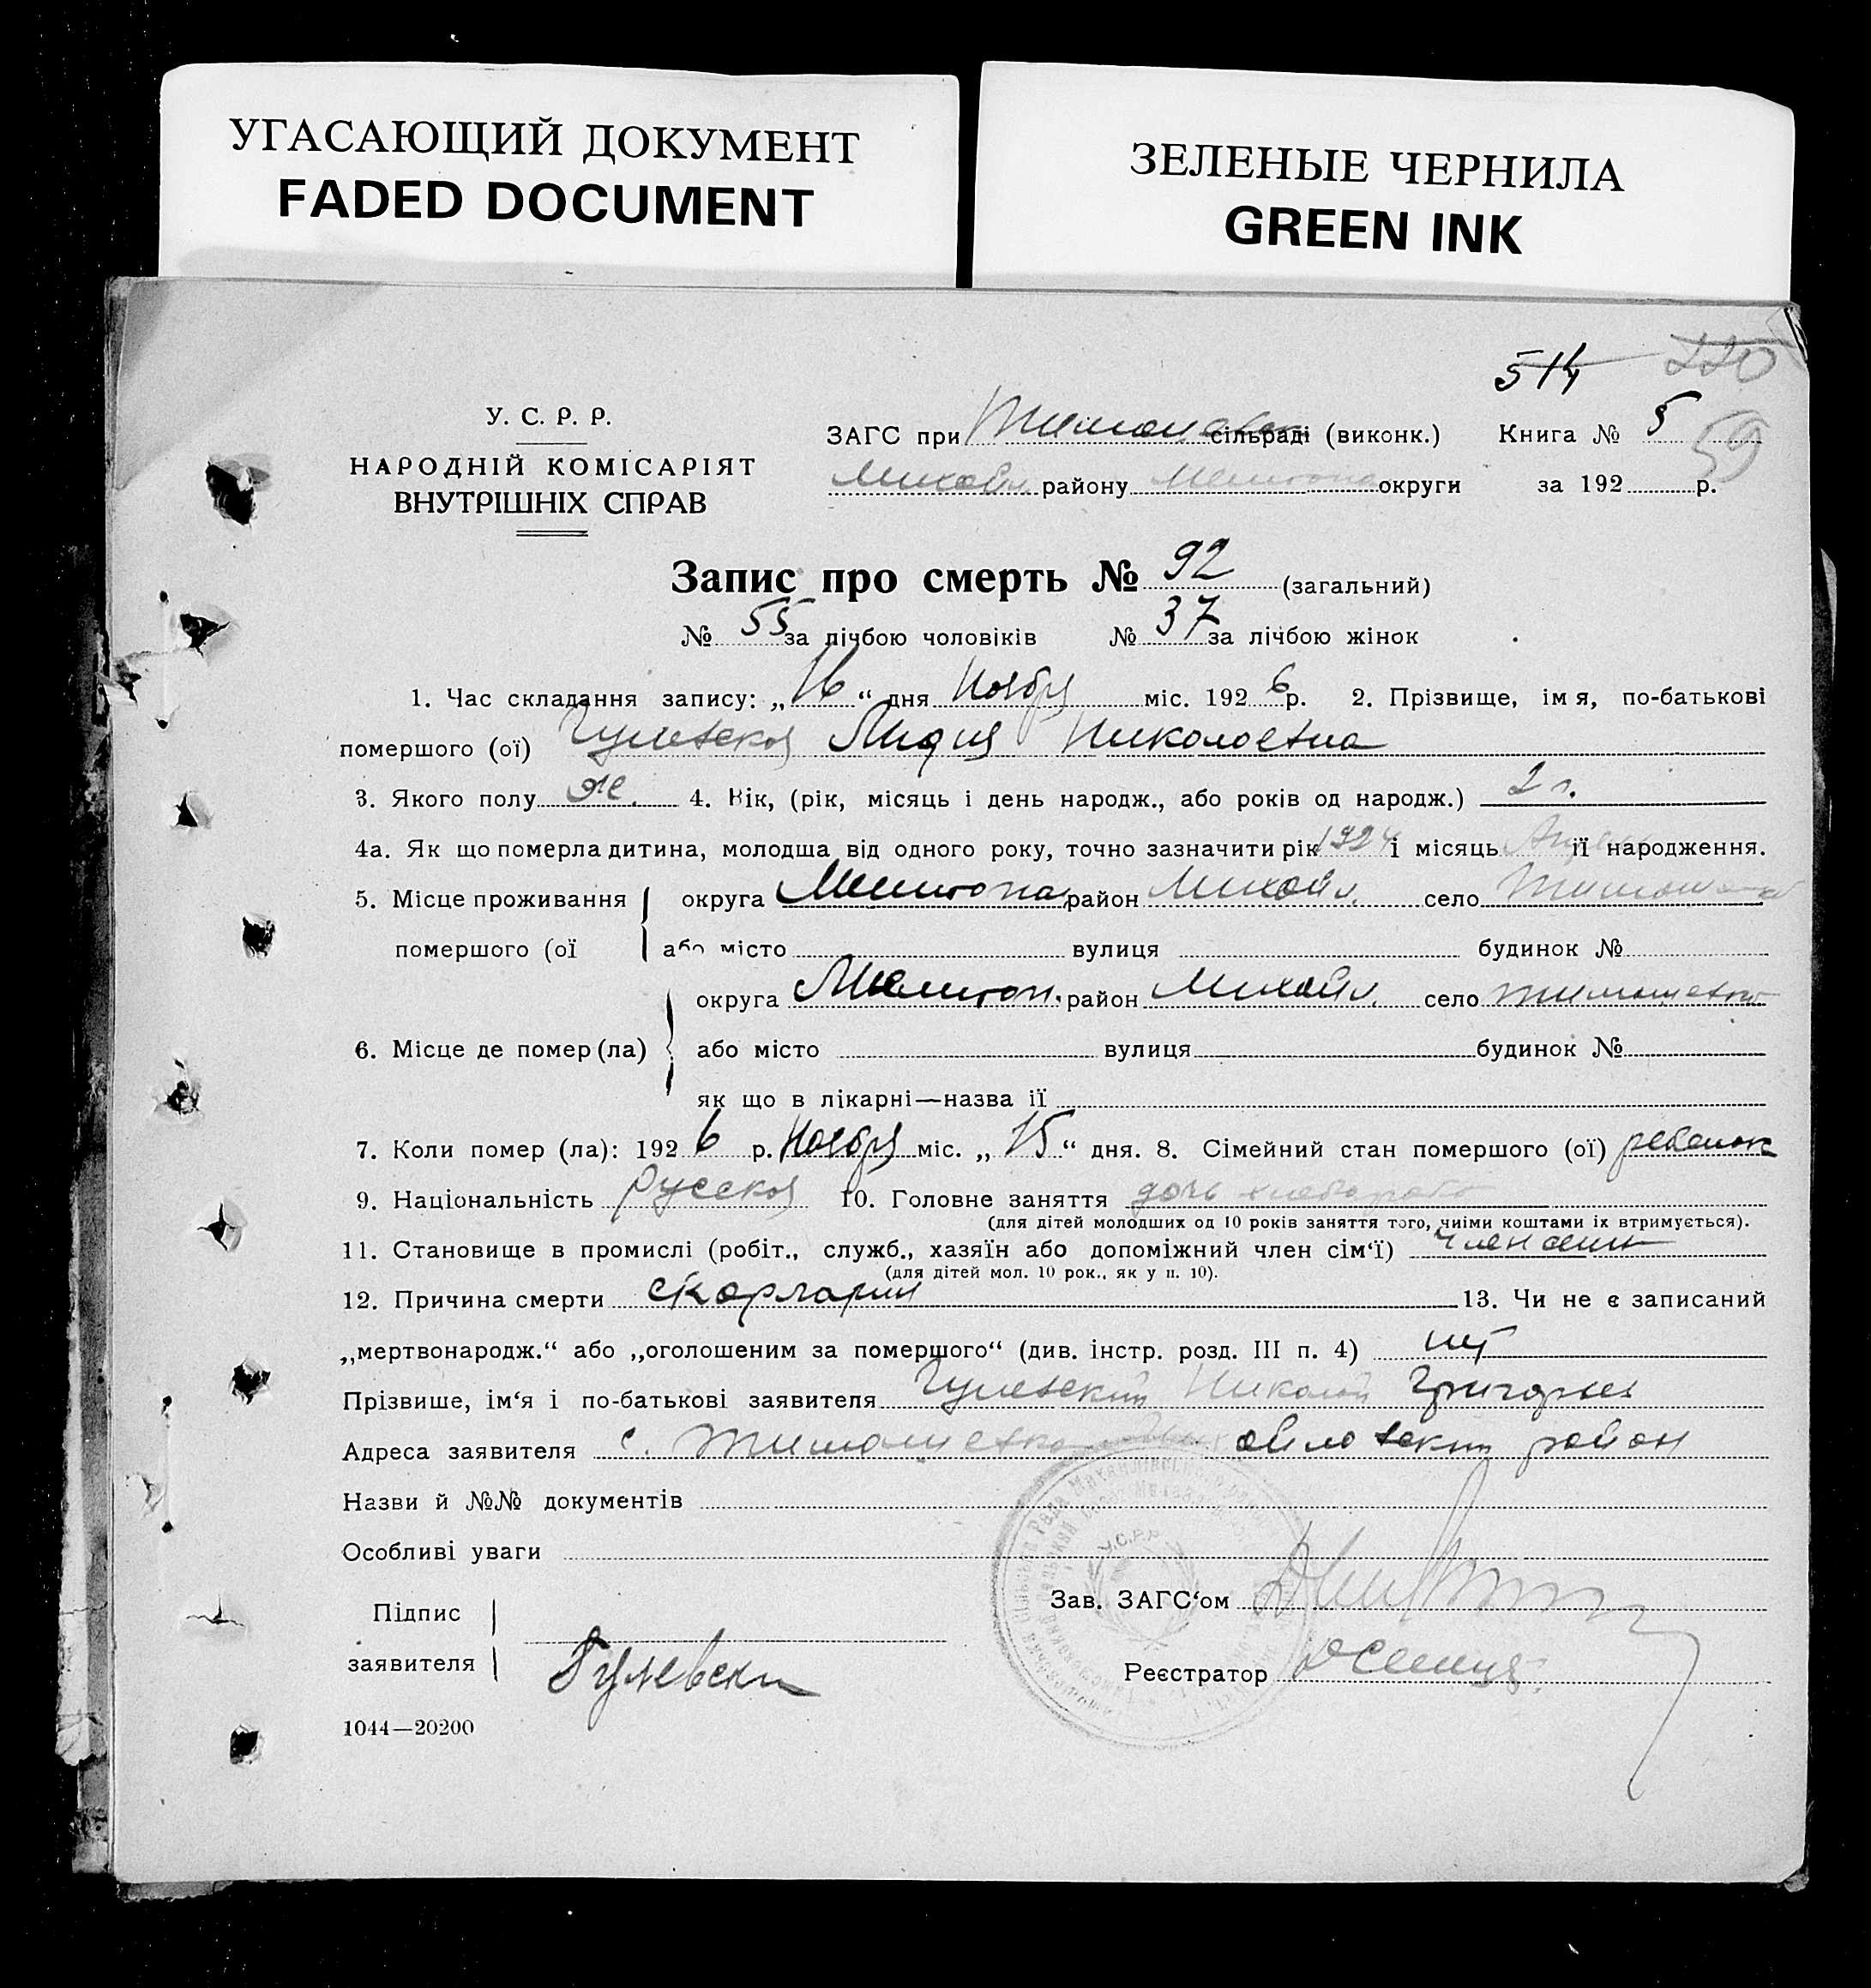 УГАСАЮЩИЙ ДОКУМЕНТ
FADED DOCUMENT
ЗЕЛЕНЫЕ ЧЕРНИЛА
GREEN INK
514 220
У. С. Р. Р.
НАРОДНІЙ КОМІСАРІЯТ
ВНУТРІШНІХ СПРАВ
ЗАГС при сільраді (виконк.) Книга № 5 59
Михайл району Мелитопа округи за 192 р.
Запис про смерть № 92 (загальний)
№ 55 за лічбою чоловіків № 37 за лічбою жінок
1. Час складання запису: „16“ дня Ноября міс. 1926 р. 2. Прізвище, імя, по-батькові
помершого (ої) Гулевская Лидия Николаевна
3. Якого полу Ж. 4. Вік, (рік, місяць і день народж., або років од народж.) 2 г.
4а. Як що померла дитина, молодша від одного року, точно зазначити рік 1924 і місяць її народження.
5. Місце проживання округа Мелитопа район Михайл. село
помершого (ої або місто вулиця будинок №
округа Мелитоп. район Михайл. село Тимошевка
6. Місце де помер (ла) або місто вулиця будинок №
як що в лікарні—назва її
7. Коли помер (ла): 1926 р. Ноября міс. „15“ дня. 8. Сімейний стан помершого (ої) ребенок
9. Національність Русская 10. Головне заняття дочь хлебороба
(для дітей молодших од 10 років заняття того, чиіми коштами їх втримується).
11. Становище в промислі (робіт., служб., хазяїн або допоміжний член сім‘ї) член семи
(для дітей мол. 10 рок., як у п. 10).
12. Причина смерти скорлатин 13. Чи не є записаний
„мертвонародж.“ або „оголошеним за помершого“ (див. інстр. розд. III п. 4) нет
Прізвище, ім‘я і по-батькові заявителя Гулевский Николай Григорьев
Адреса заявителя с. Тимошевка Михайловский район
Назви й №№ документів
Особливі уваги
У.С.Р.Р
Зав. ЗАГС‘ом
Підпис
заявителя Гулевски
Реєстратор
1044—20200